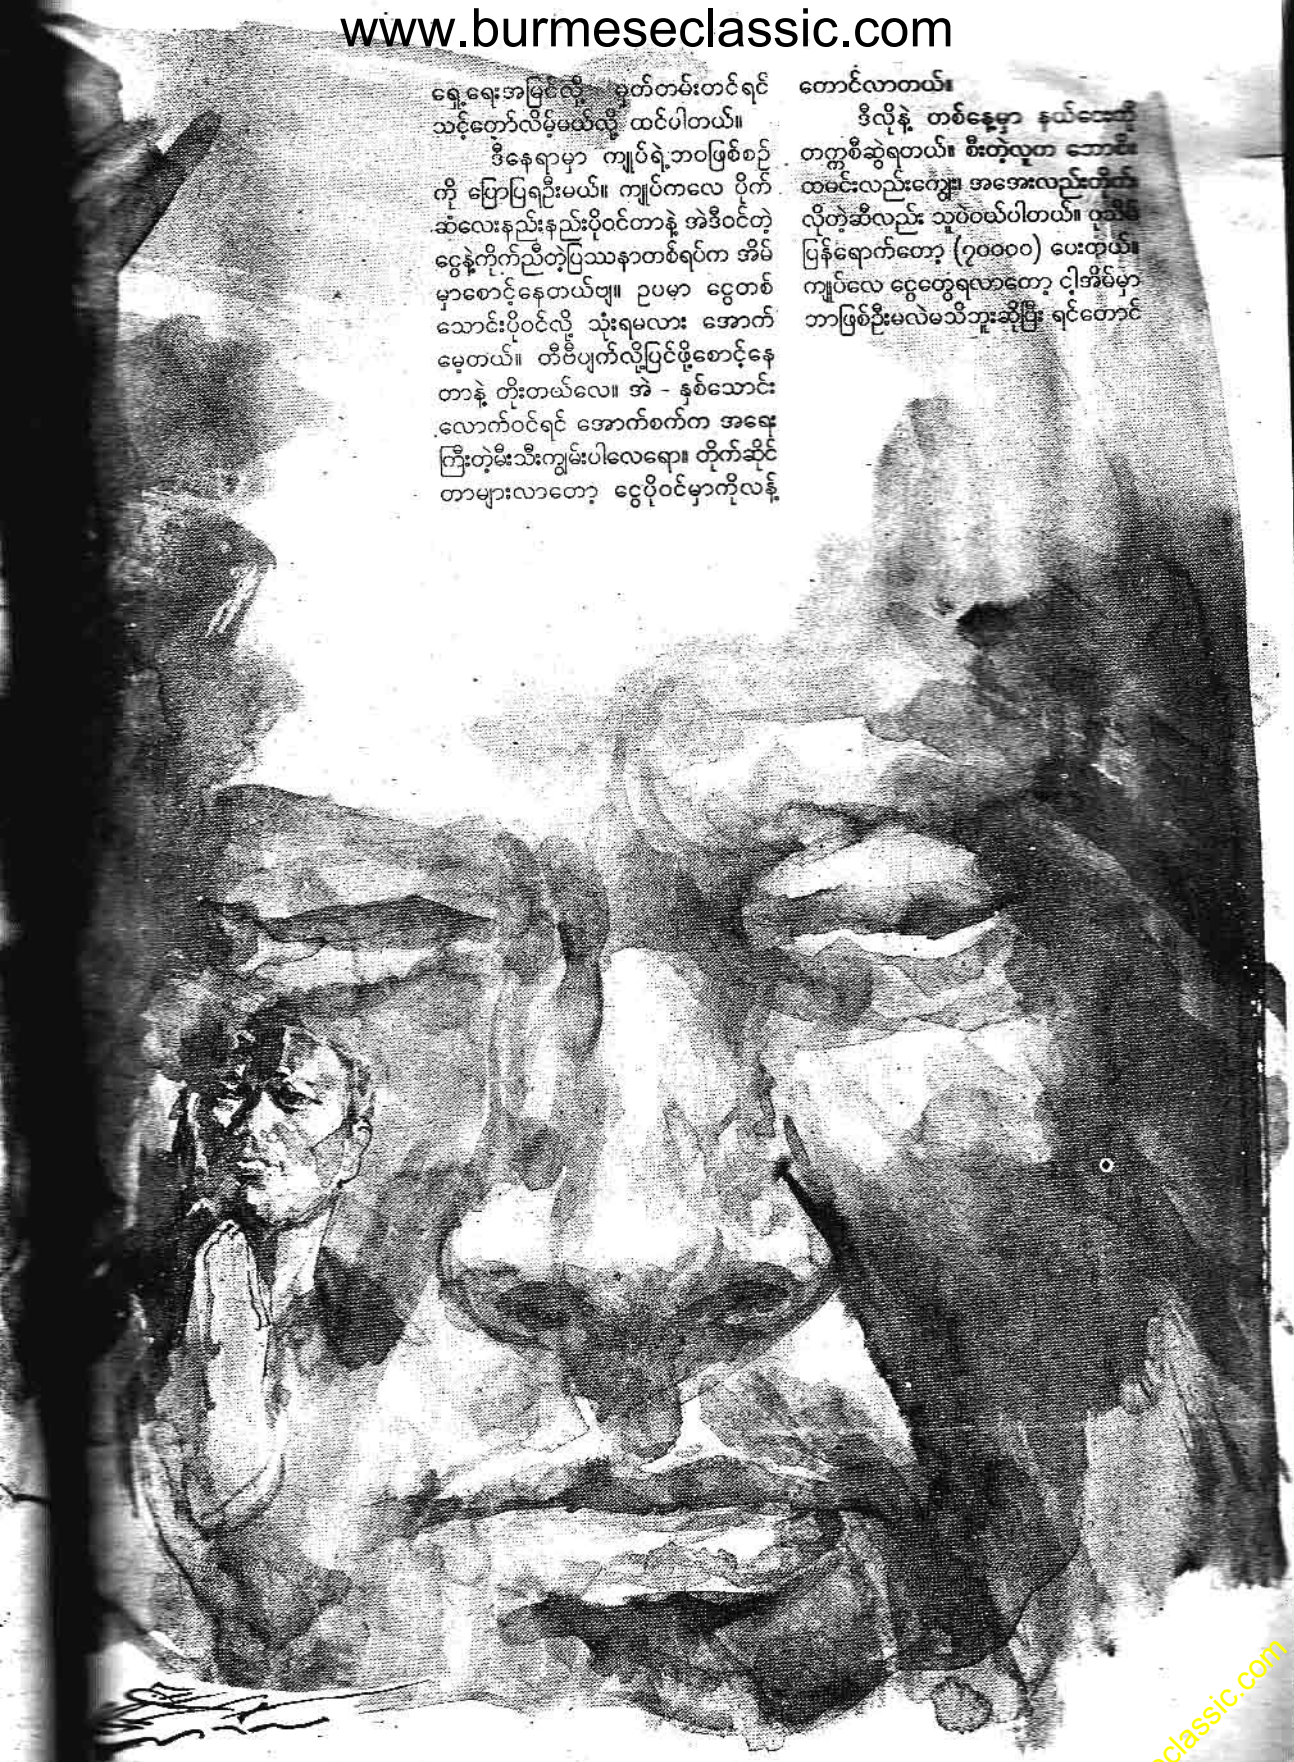 www.burmeseclassic.com
ရှေ့ရေးအမြင်လို့ မှတ်တမ်းတင်ရင်
သင့်တော်လိမ့်မယ်လို့ ထင်ပါတယ်။
ဒီနေရာမှာ ကျုပ်ရဲ့ဘဝဖြစ်စဉ်
ကို ပြောပြရဦးမယ်။ ကျုပ်ကလေ ပိုက်
ဆံလေးနည်းနည်းပိုဝင်တာနဲ့ အဲဒီဝင်တဲ့
ငွေနဲ့ကိုက်ညီတဲ့ပြဿနာတစ်ရပ်က အိမ်
မှာစောင့်နေတယ်ဗျ။ ဥပမာ ငွေတစ်
သောင်းပိုဝင်လို့ သုံးရမလား အောက်
မေ့တယ်။ တီဗီပျက်လို့ပြင်ဖို့စောင့်နေ
တာနဲ့ တိုးတယ်လေ။ အဲ - နှစ်သောင်း
လောက်ဝင်ရင် အောက်စက်က အရေး
ကြီးတဲ့မီးသီးကျွမ်းပါလေရော။ တိုက်ဆိုင်
တာများလာတော့ ငွေပိုဝင်မှာကိုလန့်
တောင်လာတယ်။
ဒီလိုနဲ့ တစ်နေ့မှာ နယ်ဝေးကို
တက္ကစီဆွဲရတယ်။ စီးတဲ့လူက
ထမင်းလည်းကျွေး၊ အအေးလည်းတိုက်၊
လိုတဲ့ဆီလည်း သူပဲဝယ်ပါတယ်။
ပြန်ရောက်တော့ (၇၀၀၀၀) ပေးတယ်။
ကျုပ်လေ ငွေတွေရလာတော့ ငါ့အိမ်မှာ
ဘာဖြစ်ဦးမလဲမသိဘူးဆိုပြီး ရင်တောင်
classic.com